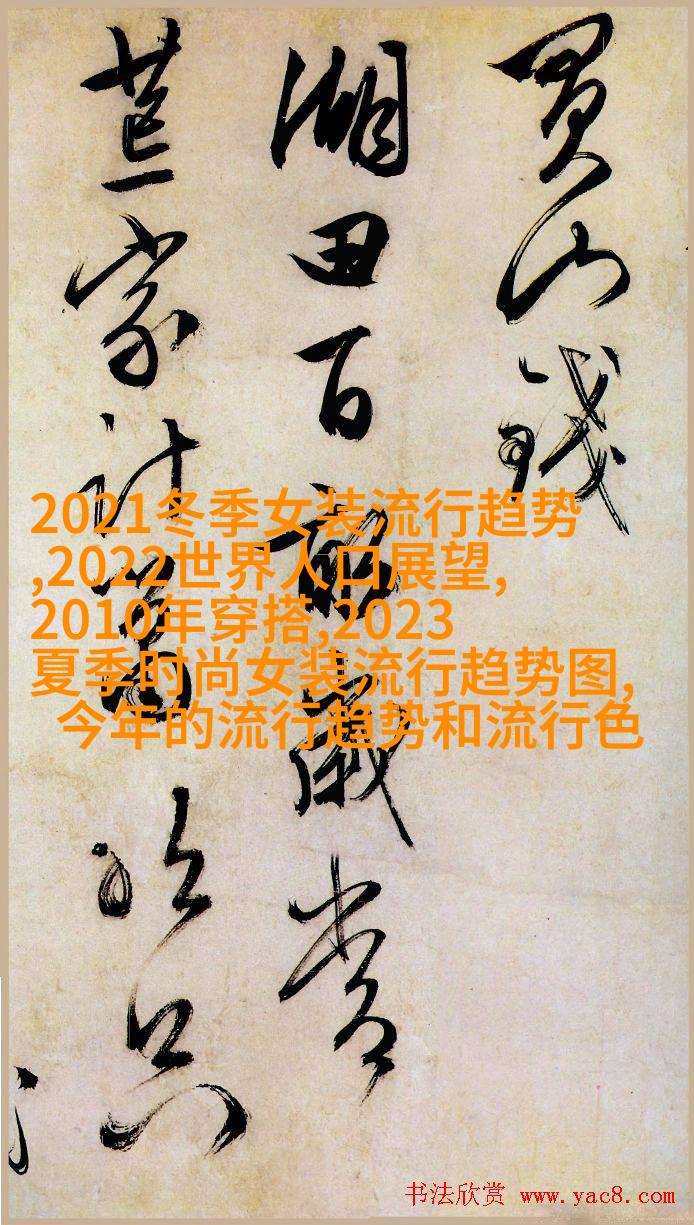 買山錢
湖田百畝歲常
荒家計只
2021冬季女装流行趋势
,2022世界人口展望,
2010年穿搭,2023
夏季时尚女装流行趋势图,
今年的流行趋势和流行色
书法欣赏 www.yac8.com